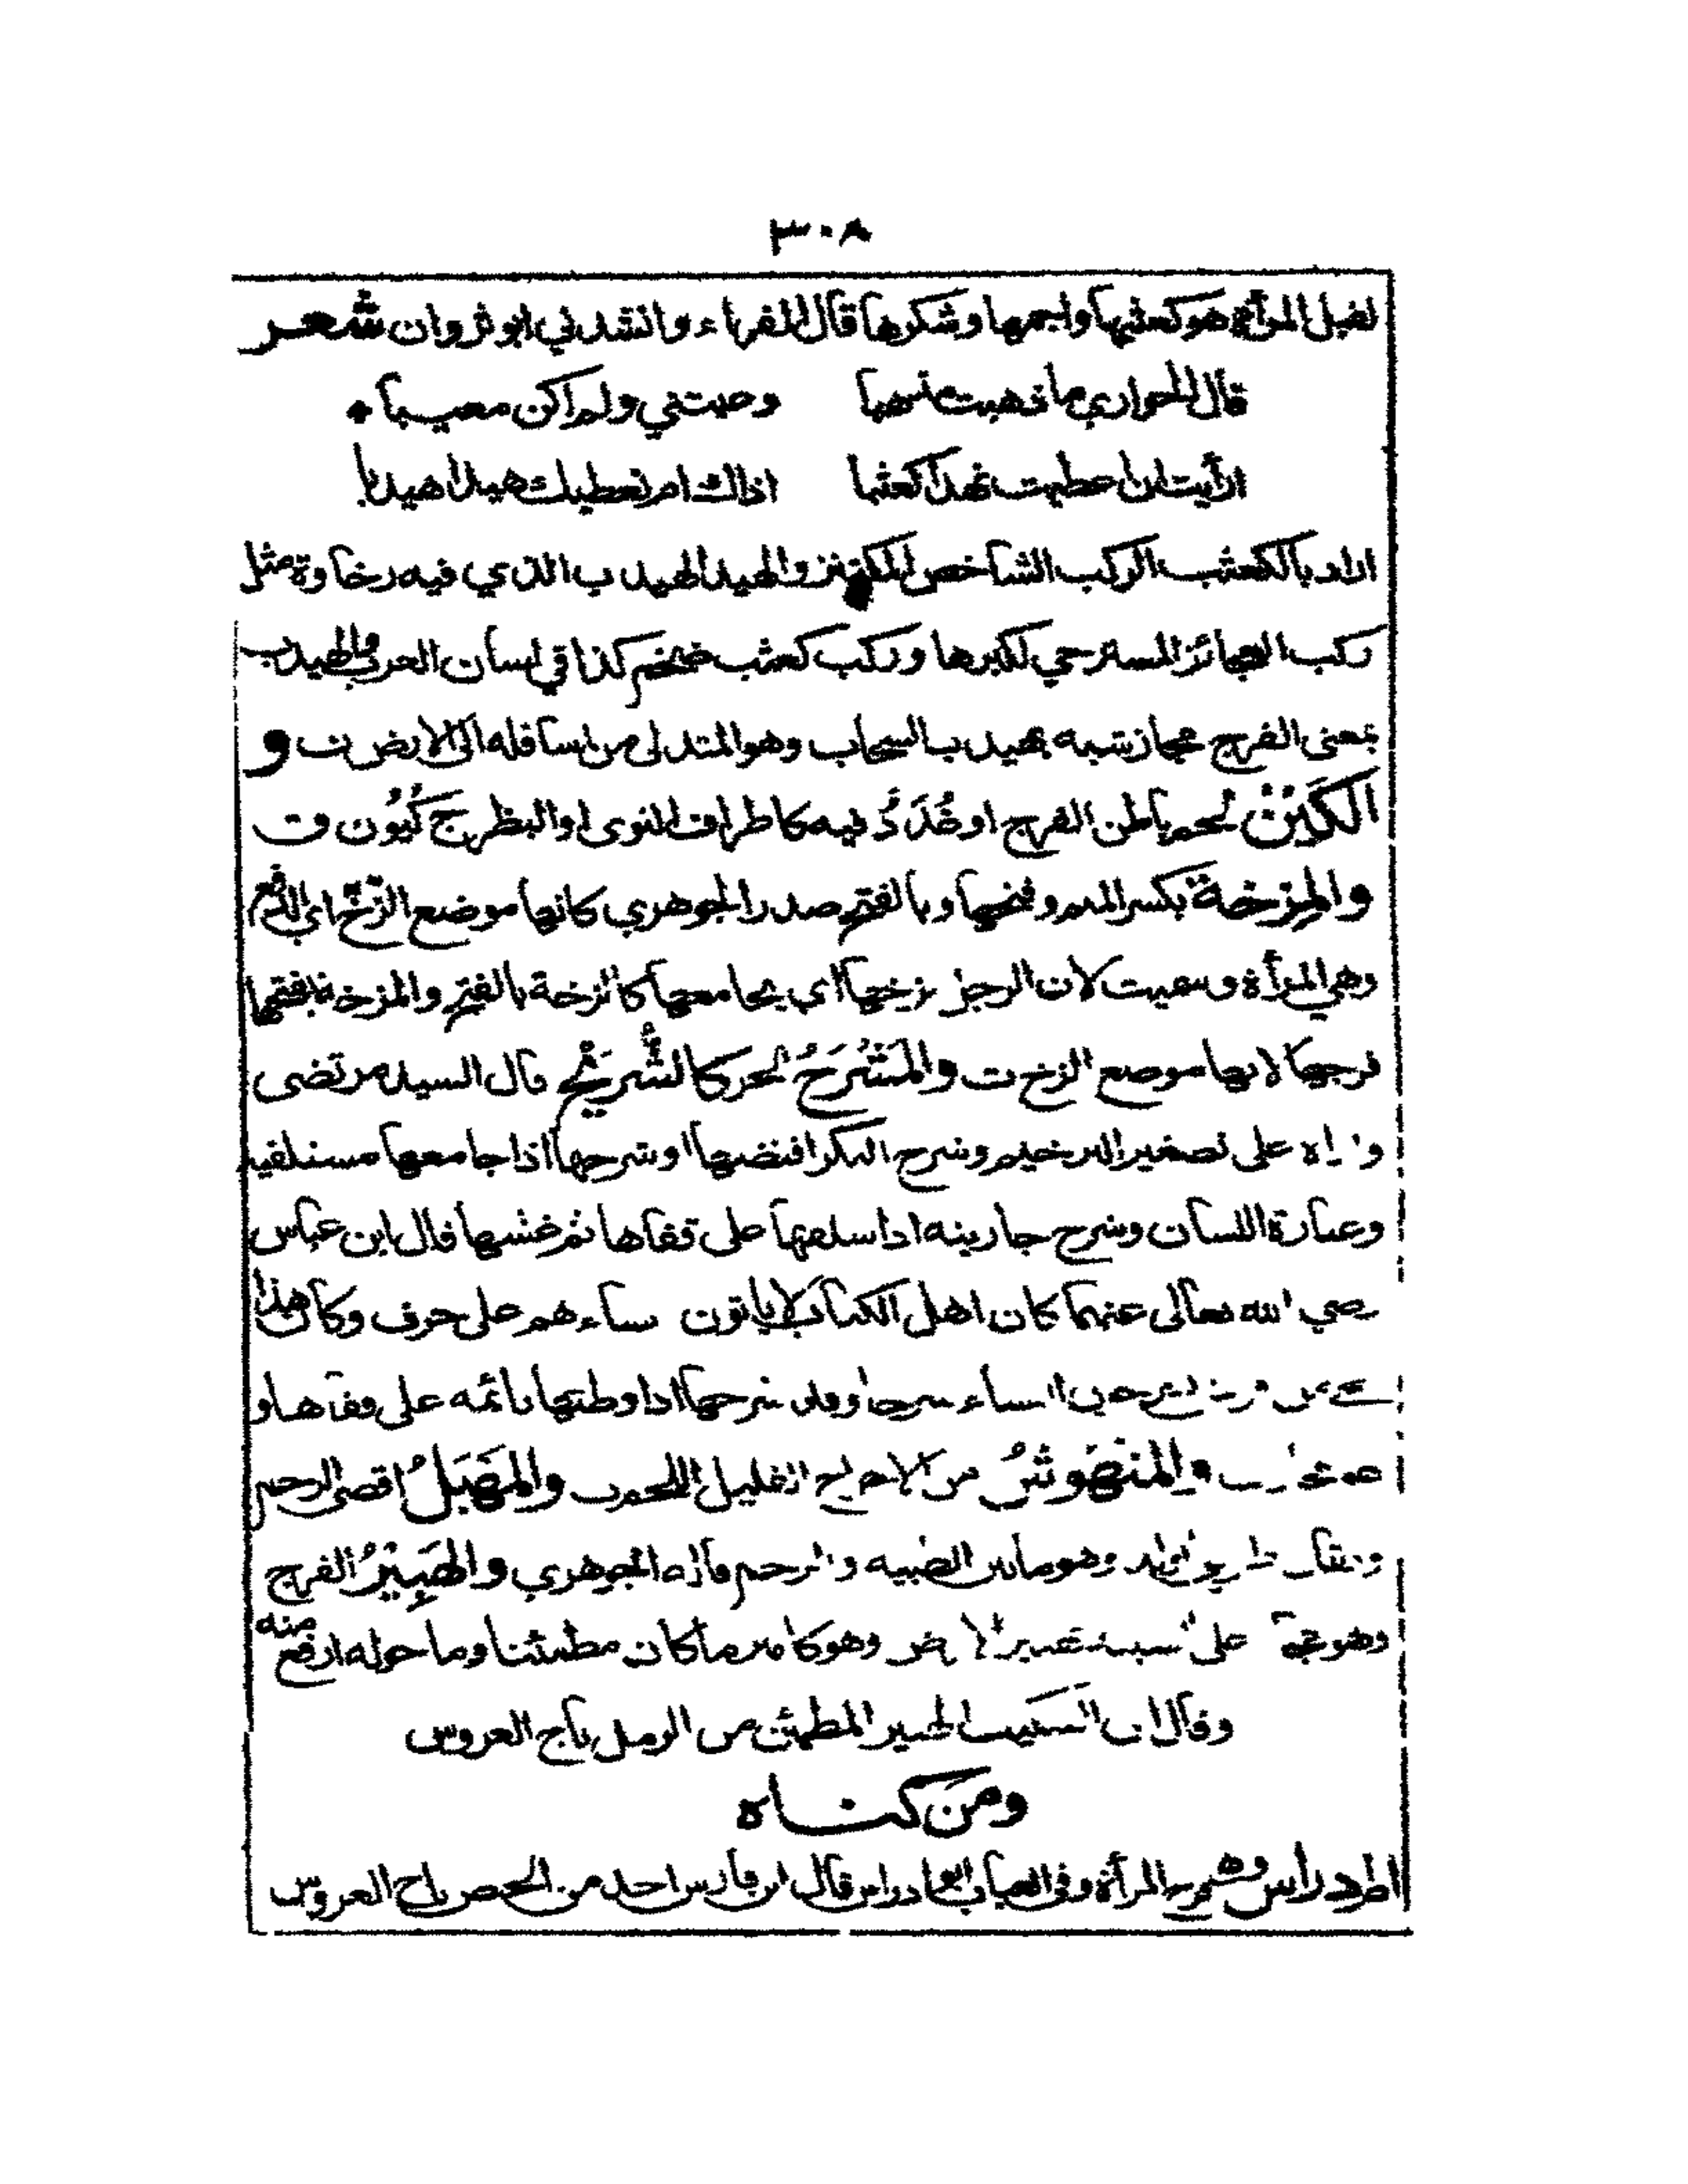 ٣٠٨
لقبل المرأة هو كعثبها واجمها وشكرها قال الفراء وانشدني ابو ثروان شعر
قال الجواري ما ذهبت مذهبا وعيبتني ولم اكن معيبا
ارأيت ان اعطيت نهدا كعثبا اذاك ام نعطيك هيدا هيدبا
اراد بالكعثب الركب الشاخص المكتنز والهيد الهيدب الذي فيه رخاوة مثل
ركب العجائز المسترخي لكبرها وركب كعثب ضخم كذا في لسان العرب والهيدب
بمعنى الفرج مجاز شبه بهيدب السحاب وهو المتدلى من اسافله الى الارض ت و
الكَيْنُ لحم باطن الفرج او غُدَدٌ فيه كاطراف النوى او البظر ج كُيُون ق ت
والمِزخة بكسر الميم وفتحها وبالفتح صدر الجوهري كانها موضع الزخّ اي الدفع
وهي المرأة وسميت لان الرجل يزخها اي يجامعها كالزخة بالفتح والمزخة بفتحها
فرجها لانها موضع الزخ ت والمَشْرَحُ الحر كالشُّرَيْح قال السيد مرتضى
واراه على تصغير الترخيم وشرح البكر افتضها او شرحها اذا جامعها مستلقية
وعبارة اللسان وشرح جاريته اذا سلقها على قفاها ثم غشيها قال ابن عباس
رضي الله تعالى عنهما كان اهل الكتاب لا ياتون نساءهم على حرف وكان هذا
الحي من قريش يشرحون النساء شرحا وقد شرحها اذا وطئها نائمة على قفاها و
والمنهُوشُ من الاحراح القليل اللحم ت والمَهْبَلُ اقصى الرحم
ويقال طريق الولد وهو ما بين الظبية والرحم قاله الجوهري والهَبِيْرُ الفرج
وهو على تشبيه بهبير الارض وهو كامير ما كان مطمئنا وما حوله ارفع منه
وقال ابن السكيت الهبير المطمئن من الرمل تاج العروس
ومن كناه
ابو ادراس وهو فرج المرأة وفي العباب ابو ادراس قال ابن فارس اخذ من الحيض تاج العروس